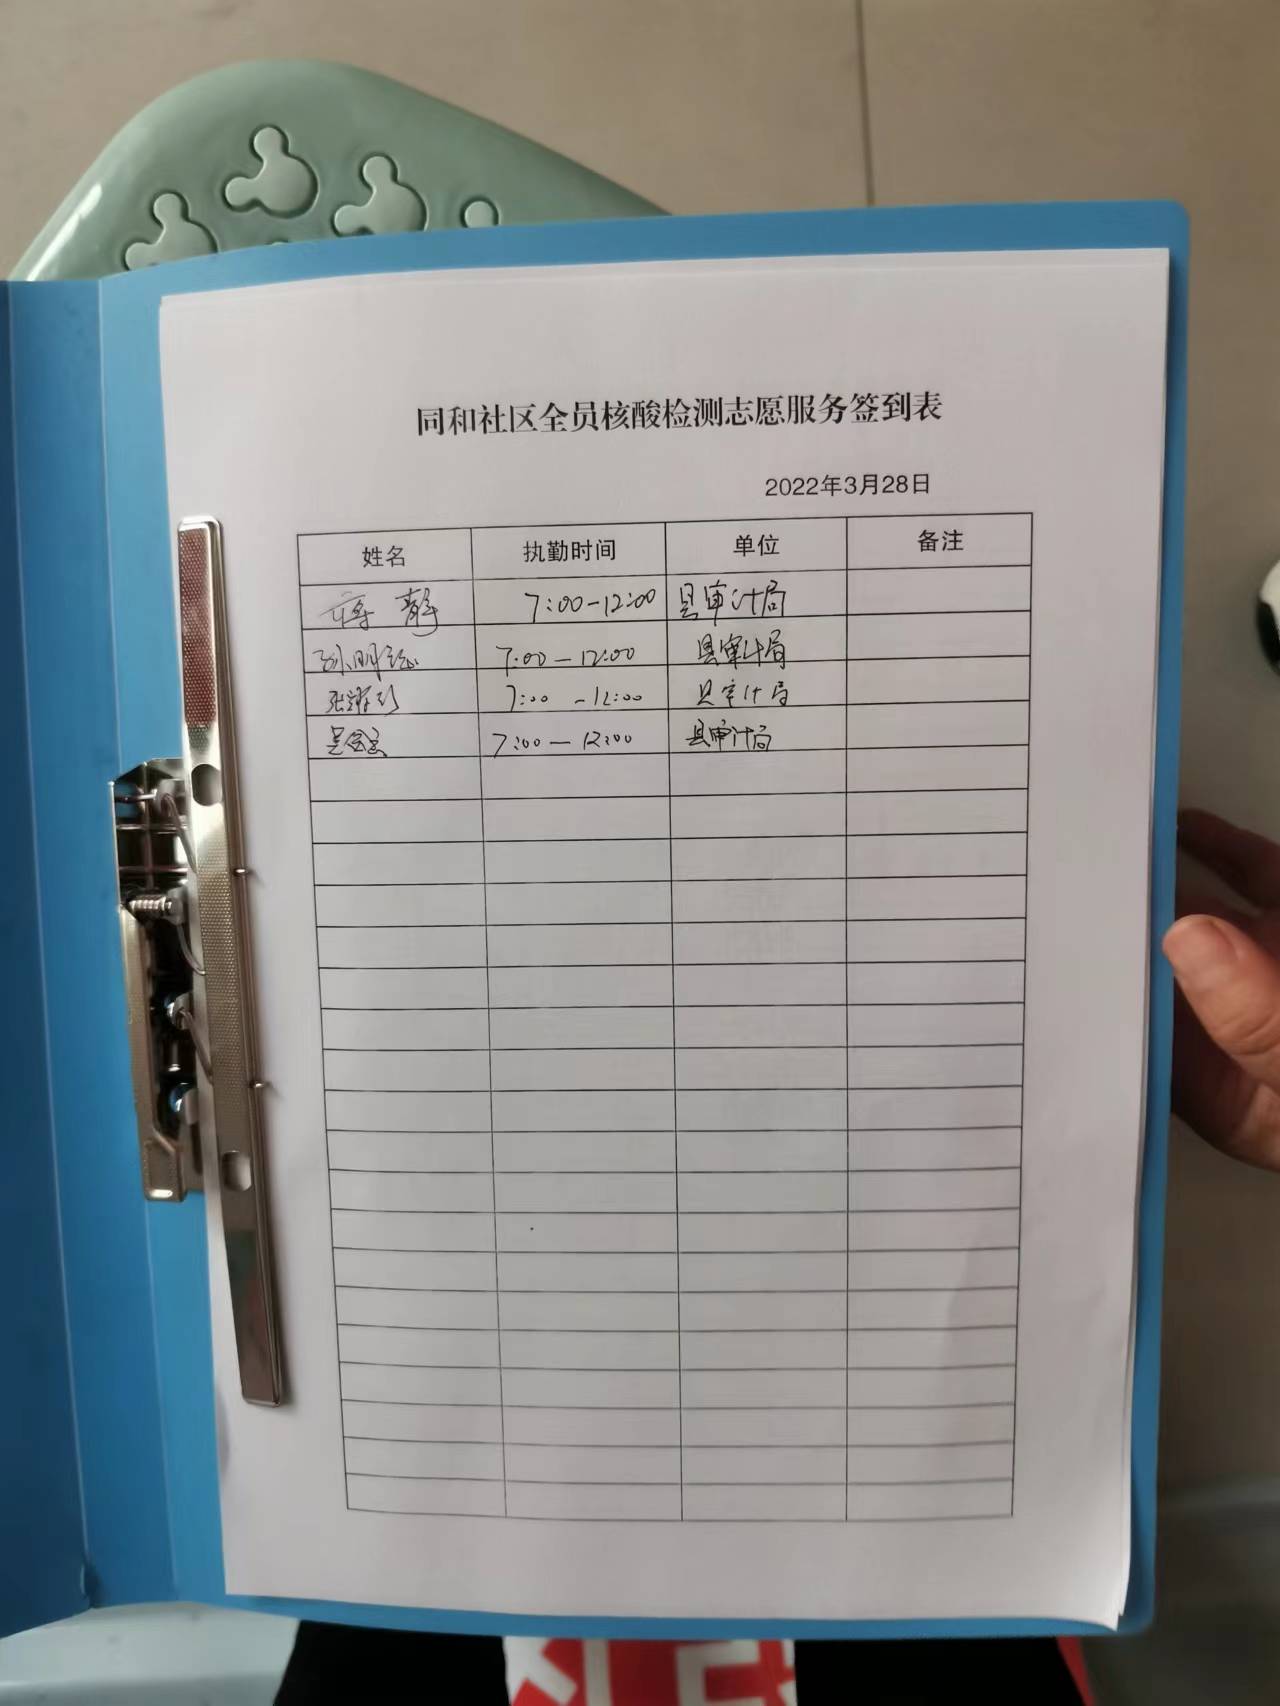 同和社区全员核酸检测志愿服务签到表
2022年3月28日
姓名 执勤时间 单位 备注
蒋静 7:00-12:00 县审计局
孙明 7:00-12:00 县审计局
张 7:00-12:00 县审计局
吴 7:00-12:00 县审计局